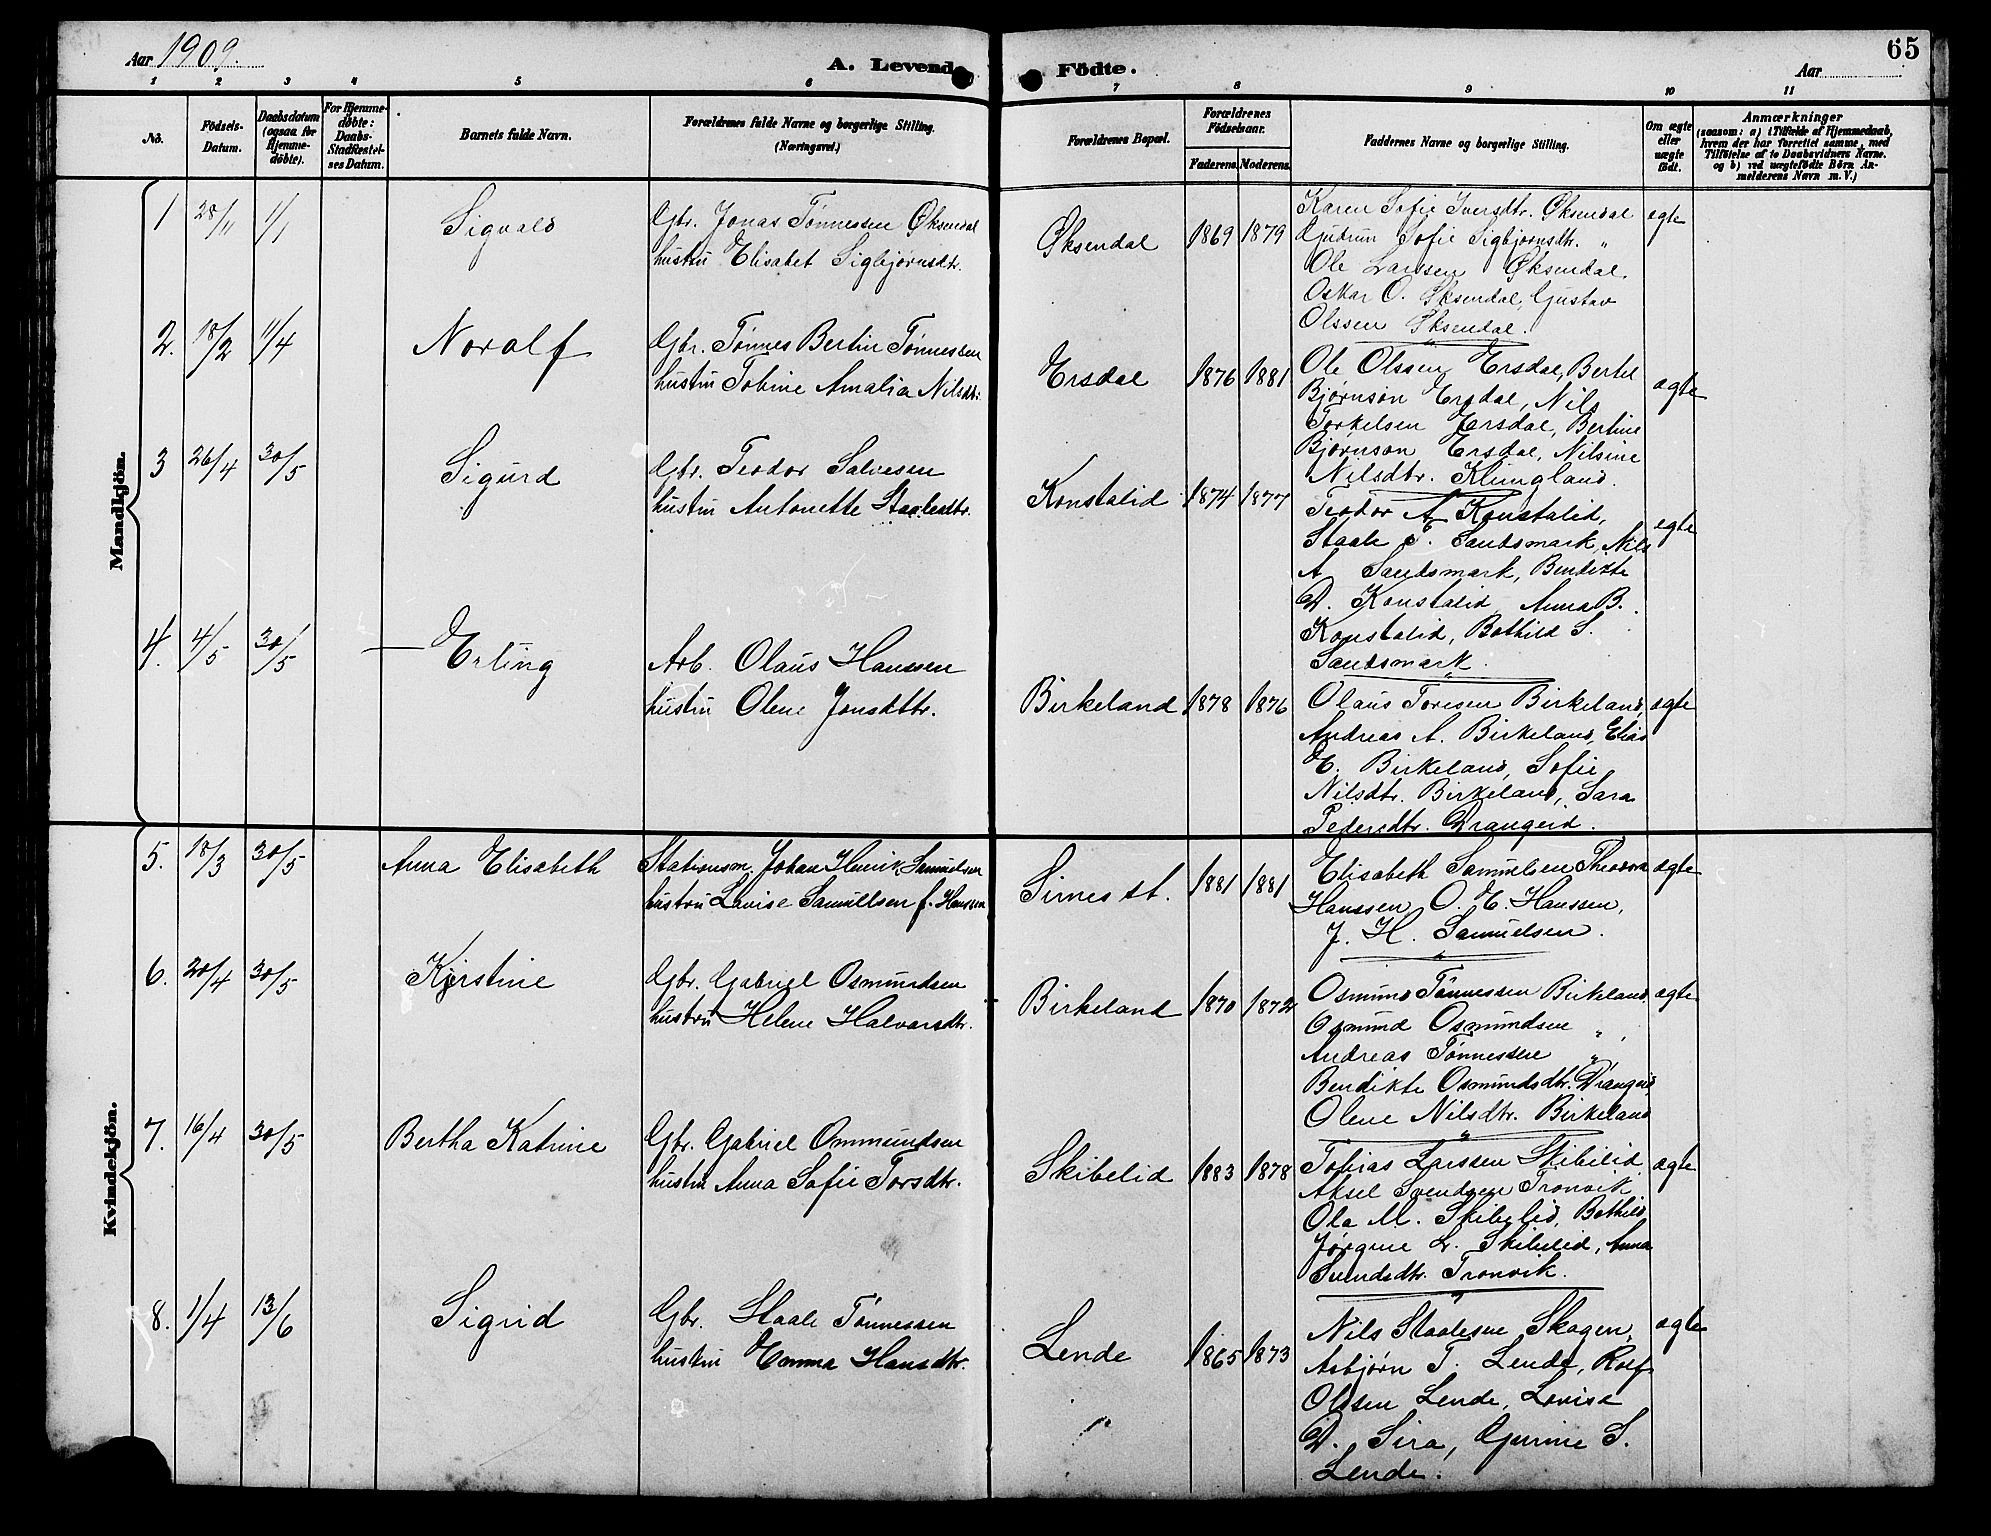 Aar 1909.
A. Levende Födte.
Aar
65
1 2 3 4 5 6 7 8 9 10 11
No.
Födsels-
Datum.
Daabsdatum
(ogsaa for
Hjemme-
döbte).
For Hjemme-
döbte:
Daabs-
Stadfæstel-
ses Datum.
Barnets fulde Navn.
Forældrenes fulde Navne og borgerlige Stilling.
(Næringsvei.)
Forældrenes Bopæl.
Forældrenes
Födselsaar.
Faderens.
Moderens.
Faddernes Navne og borgerlige Stilling.
Om ægte
eller
uægte
födt.
Anmærkninger
(saasom: a) i Tilfælde af Hjemmedaab,
hvem der har forrettet samme, med
Tilföielse af to Daabsvidners Navne.
og b) ved uægtefödte Börn An-
melderens Navn m. V.)
Mandkjön.
1 28/11 1/1 Sigvald
Gbr. Jonas Tønnessen Øksendal
hustru Elisabet Sigbjørnsdtr.
Øksendal 1869 1879
Karen Sofie Iversdtr. Øksendal
Gudrun Sofie Sigbjørnsdtr. "
Ole Larssen Øksendal,
Oskar O. Øksendal, Gustav
Olssen Øksendal.
ægte
2. 18/2 11/4 Noralf
Gbr. Tønnes Bertin Tønnessen
hustru Tobine Amalia Nilsdtr.
Ersdal 1876 1881
Ole Olssen Ersdal, Bertel
Bjørnson Ersdal, Nils
Torkelsen Ersdal, Bertine
Bjørnson Ersdal, Nilsine
Nilsdtr. Klungland.
ægte
3 26/4 30/5 Sigurd
Gbr. Teodor Salvesen
hustru Antonette Staalesdtr.
Konstalid 1874 1877
Teodor A. Konstalid,
Staale T. Sandsmark, Nils
A. Sandsmark, Bendikte
D. Konstalid, Anna B.
Konstalid, Bothild S.
Sandsmark.
egte
4. 4/5 30/5 Erling
Arb. Olaus Hanssen
hustru Olene Jonsdttr.
Birkeland 1878 1876
Olaus Toresen Birkeland,
Andreas A. Birkeland, Elias
E. Birkeland, Sofie
Nilsdtr. Birkeland, Sara
Pedersdtr. Drangeid.
ægte
Kvindekjön.
5. 18/3 30/5 Anna Elisabeth
Stationsm. Johan Henrik Samuelsen
hustru Lovise Samuelsen f. Hanssen
Sirnes st. 1881 1881
Elisabeth Samuelsen Theodora
Hanssen, O. E. Hanssen,
J. H. Samuelsen.
ægte
6. 20/4 30/5 Kjerstine
Gbr. Gabriel Osmundsen
hustru Helene Halvorsdtr.
Birkeland 1870 1872
Osmund Tønnessen Birkeland,
Osmund Osmundsen "
Andreas Tønnessen "
Bendikte Osmundsdtr. Drangeid,
Olene Nilsdtr. Birkeland
ægte
7. 16/4 30/5 Bertha Katrine
Gbr. Gabriel Ommundsen
hustru Anna Sofie Torsdtr.
Skibelid 1883 1878
Tobias Larssen Skibelid,
Aksel Svendsen Tronvik
Ola M. Skibelid, Bothild
Jørgine L. Skibelid, Anna
Svendsdtr. Tronvik.
ægte
8. 1/4 13/6 Sigrid
Gbr. Staale Tønnessen
hustru Emma Hansdtr.
Lende 1865 1873
"
Nils Staalesen Skogen,
Asbjørn T. Lende, Rolf
Olssen Lende, Lovise
D. Sira, Gurine S.
Lende.
ægte